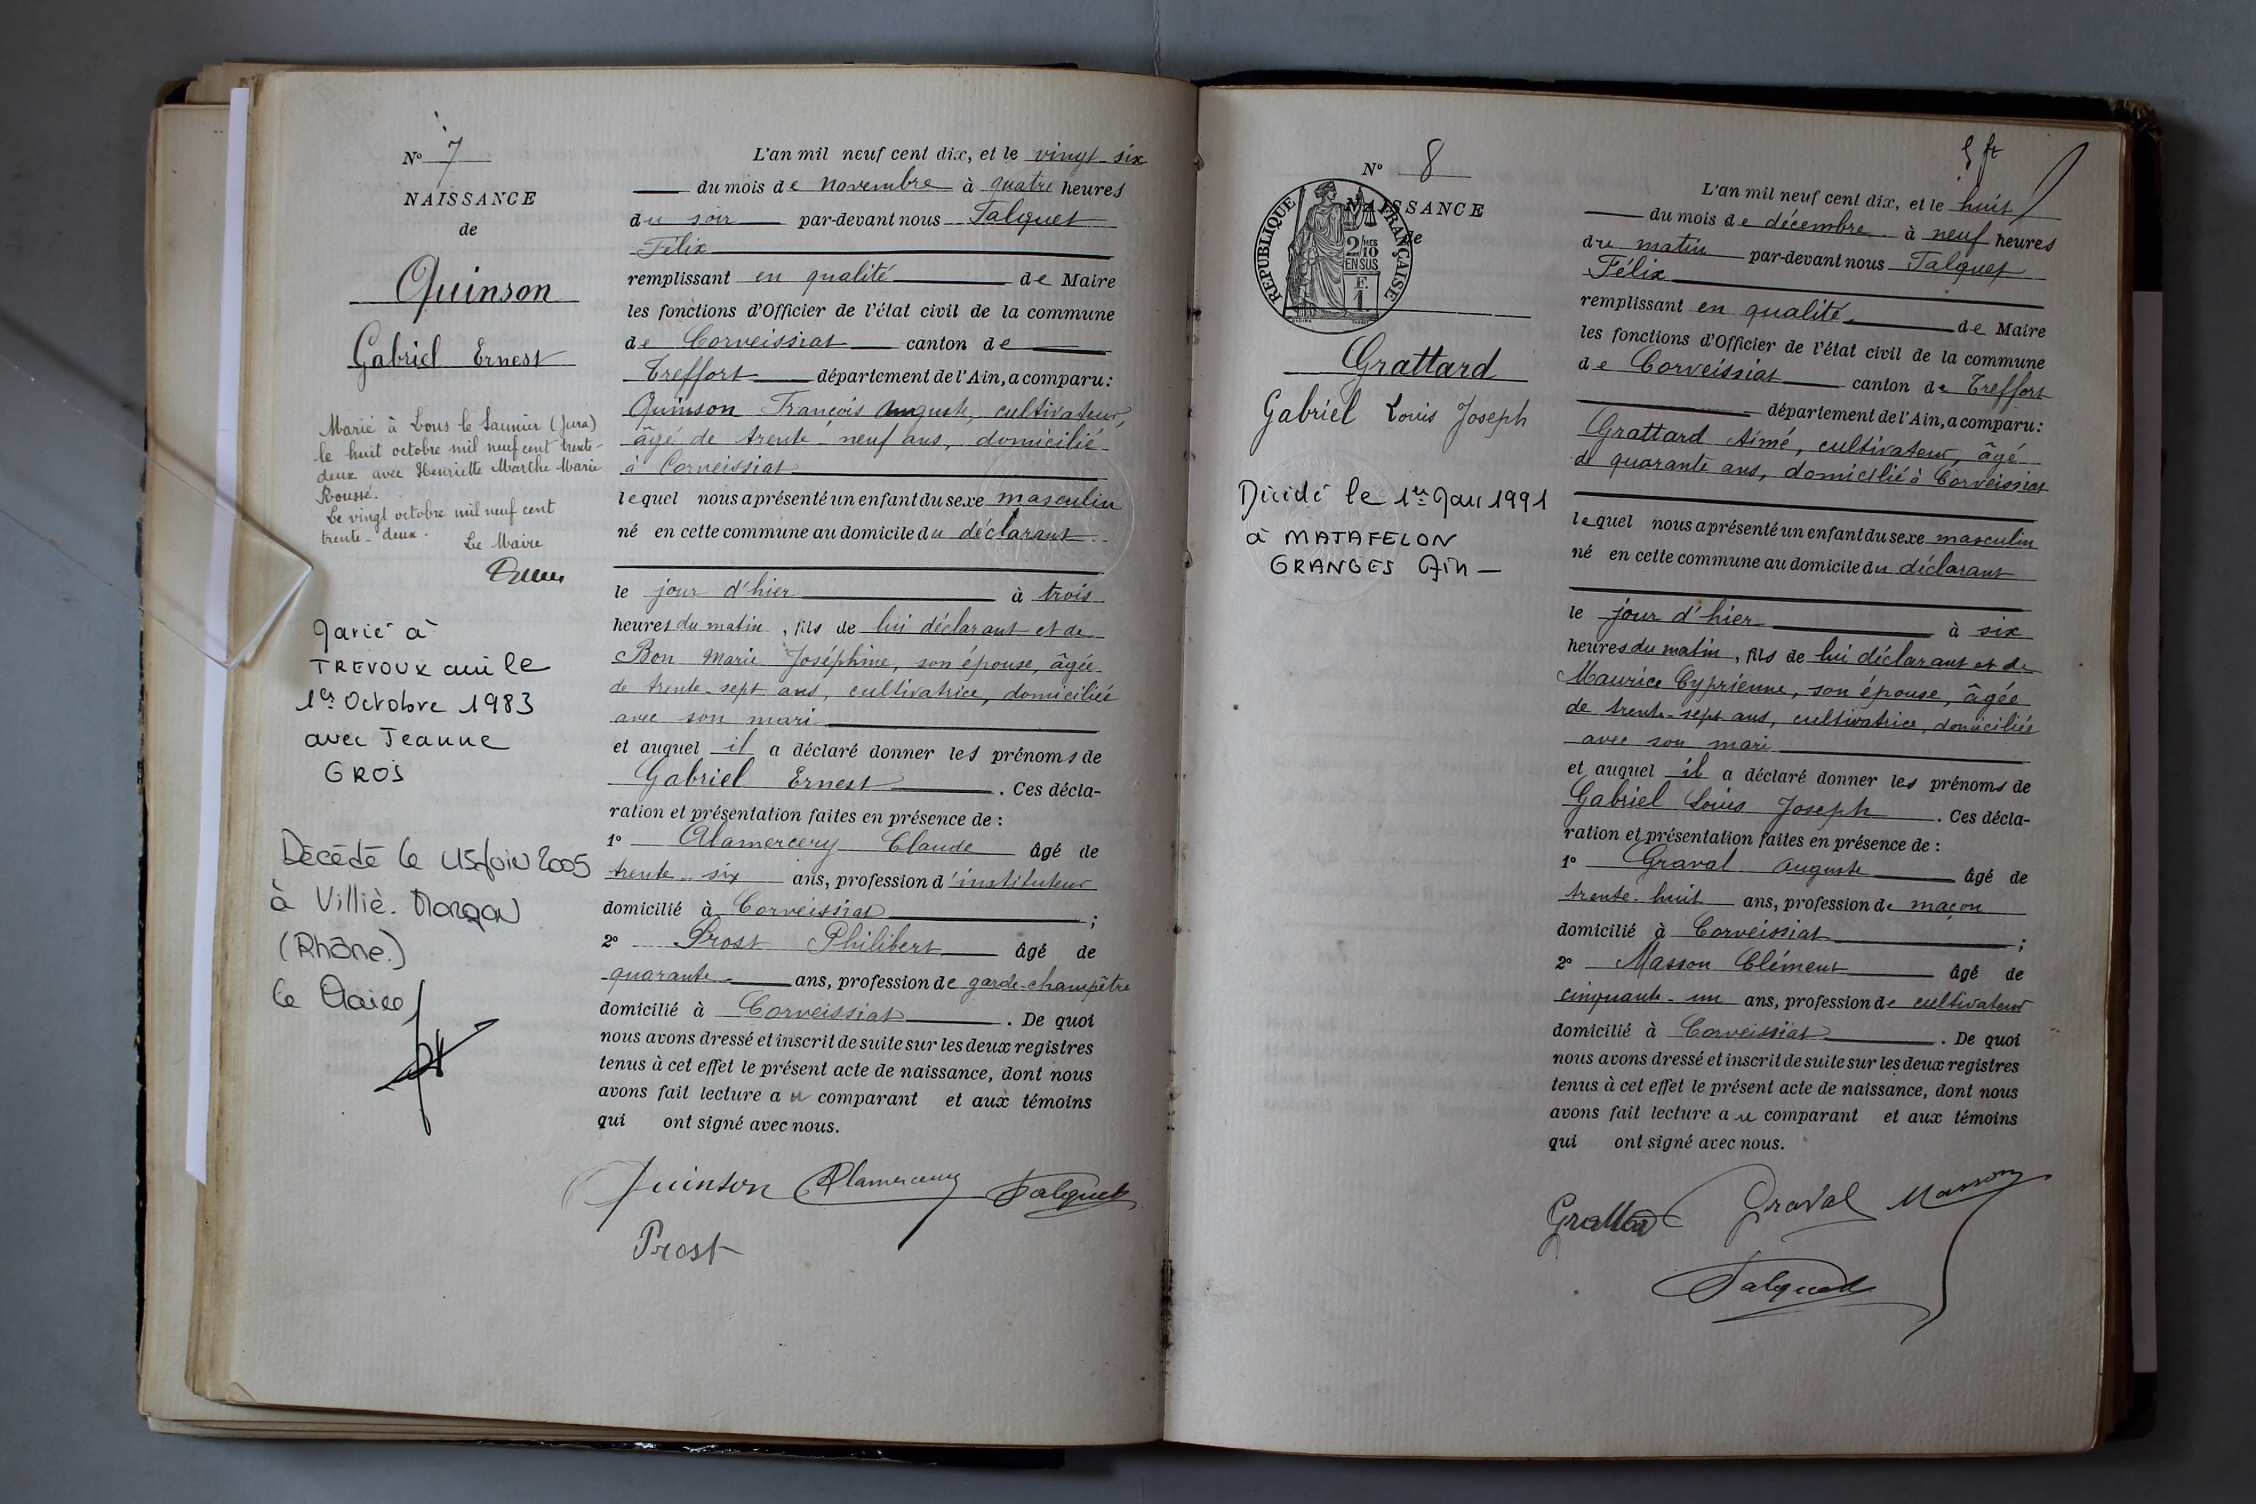 N° 7
NAISSANCE
de
Quinson
Gabriel Ernest
Marié à Lons le Saunier (Jura)
le huit octobre mil neuf cent trente-
deux avec Henriette Marthe Marie
Roussé.
Le vingt octobre mil neuf cent
trente-deux.
Le Maire
Marié à
TREVOUX ain le
1er Octobre 1983
avec Jeanne
GROS
Décédé le 15 Juin 2005
à Villié-Morgon
(Rhône.)
le Maire
L'an mil neuf cent dix, et le vingt-six
du mois de novembre à quatre heures
du soir par-devant nous Falquet
Félix
remplissant en qualité de Maire
les fonctions d'Officier de l'état civil de la commune
de Corveissiat canton de
Treffort département de l'Ain, a comparu:
Quinson François Auguste, cultivateur,
âgé de trente-neuf ans, domicilié
à Corveissiat
lequel nous a présenté un enfant du sexe masculin
né en cette commune au domicile du déclarant
le jour d'hier à trois
heures du matin, fils de lui déclarant et de
Bon Marie Joséphine, son épouse, âgée
de trente-sept ans, cultivatrice, domiciliée
avec son mari
et auquel il a déclaré donner les prénoms de
Gabriel Ernest. Ces décla-
ration et présentation faites en présence de:
1° Alamercery Claude âgé de
trente-six ans, profession d'instituteur
domicilié à Corveissiat;
2° Prost Philibert âgé de
quarante ans, profession de garde-champêtre
domicilié à Corveissiat. De quoi
nous avons dressé et inscrit de suite sur les deux registres
tenus à cet effet le présent acte de naissance, dont nous
avons fait lecture au comparant et aux témoins
qui ont signé avec nous.
Quinson Alamercery Falquet
Prost
5 ft
N° 8
NAISSANCE
de
REPUBLIQUE FRANÇAISE
2/10MES
EN SUS
F.
1
Grattard
Gabriel Louis Joseph
Décédé le 1er Jan 1991
à MATAFELON
GRANGES Ain
L'an mil neuf cent dix, et le huit
du mois de décembre à neuf heures
du matin par-devant nous Falquet
Félix
remplissant en qualité de Maire
les fonctions d'Officier de l'état civil de la commune
de Corveissiat canton de Treffort
département de l'Ain, a comparu:
Grattard Aimé, cultivateur, âgé
de quarante ans, domicilié à Corveissiat
lequel nous a présenté un enfant du sexe masculin
né en cette commune au domicile du déclarant
le jour d'hier à six
heures du matin, fils de lui déclarant et de
Maurice Cyprienne, son épouse, âgée
de trente-sept ans, cultivatrice, domiciliée
avec son mari
et auquel il a déclaré donner les prénoms de
Gabriel Louis Joseph. Ces décla-
ration et présentation faites en présence de:
1° Graval Auguste âgé de
trente-huit ans, profession de maçon
domicilié à Corveissiat;
2° Masson Clément âgé de
cinquante-un ans, profession de cultivateur
domicilié à Corveissiat. De quoi
nous avons dressé et inscrit de suite sur les deux registres
tenus à cet effet le présent acte de naissance, dont nous
avons fait lecture au comparant et aux témoins
qui ont signé avec nous.
Grattard Graval Masson
Falquet